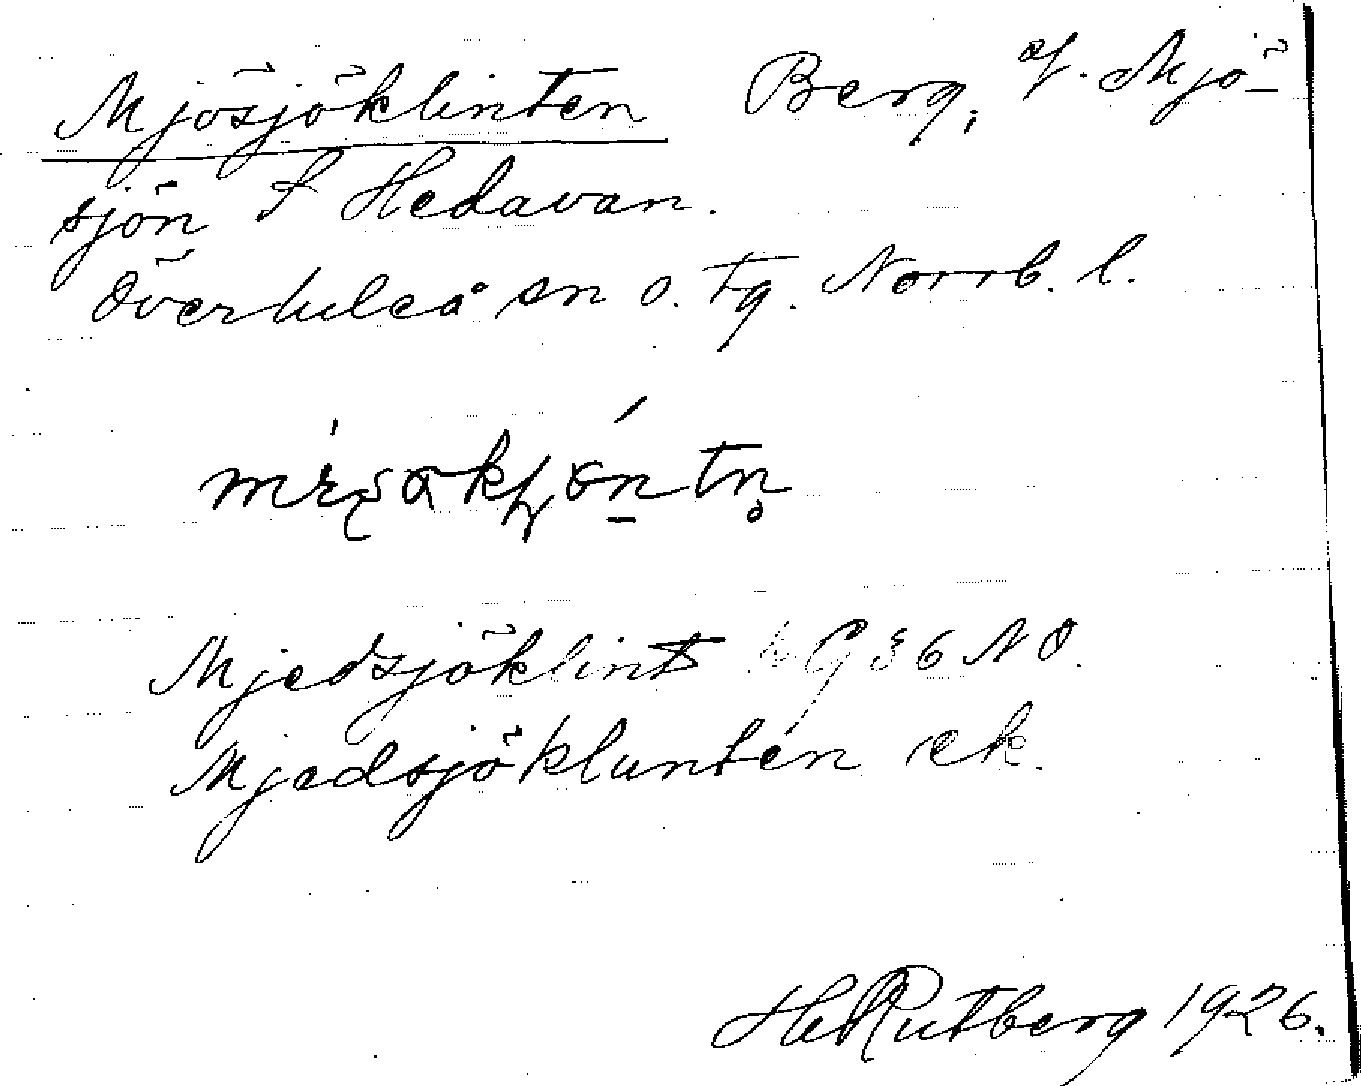 Mjösjöklinten Berg, v. Mjö-
sjön S Hedavan.
Överluleå sn o. tg. Norrb. l.
Mjedsjöklint G 36 NO.
Mjedsjöklunten ek.
H Rutberg 1926.